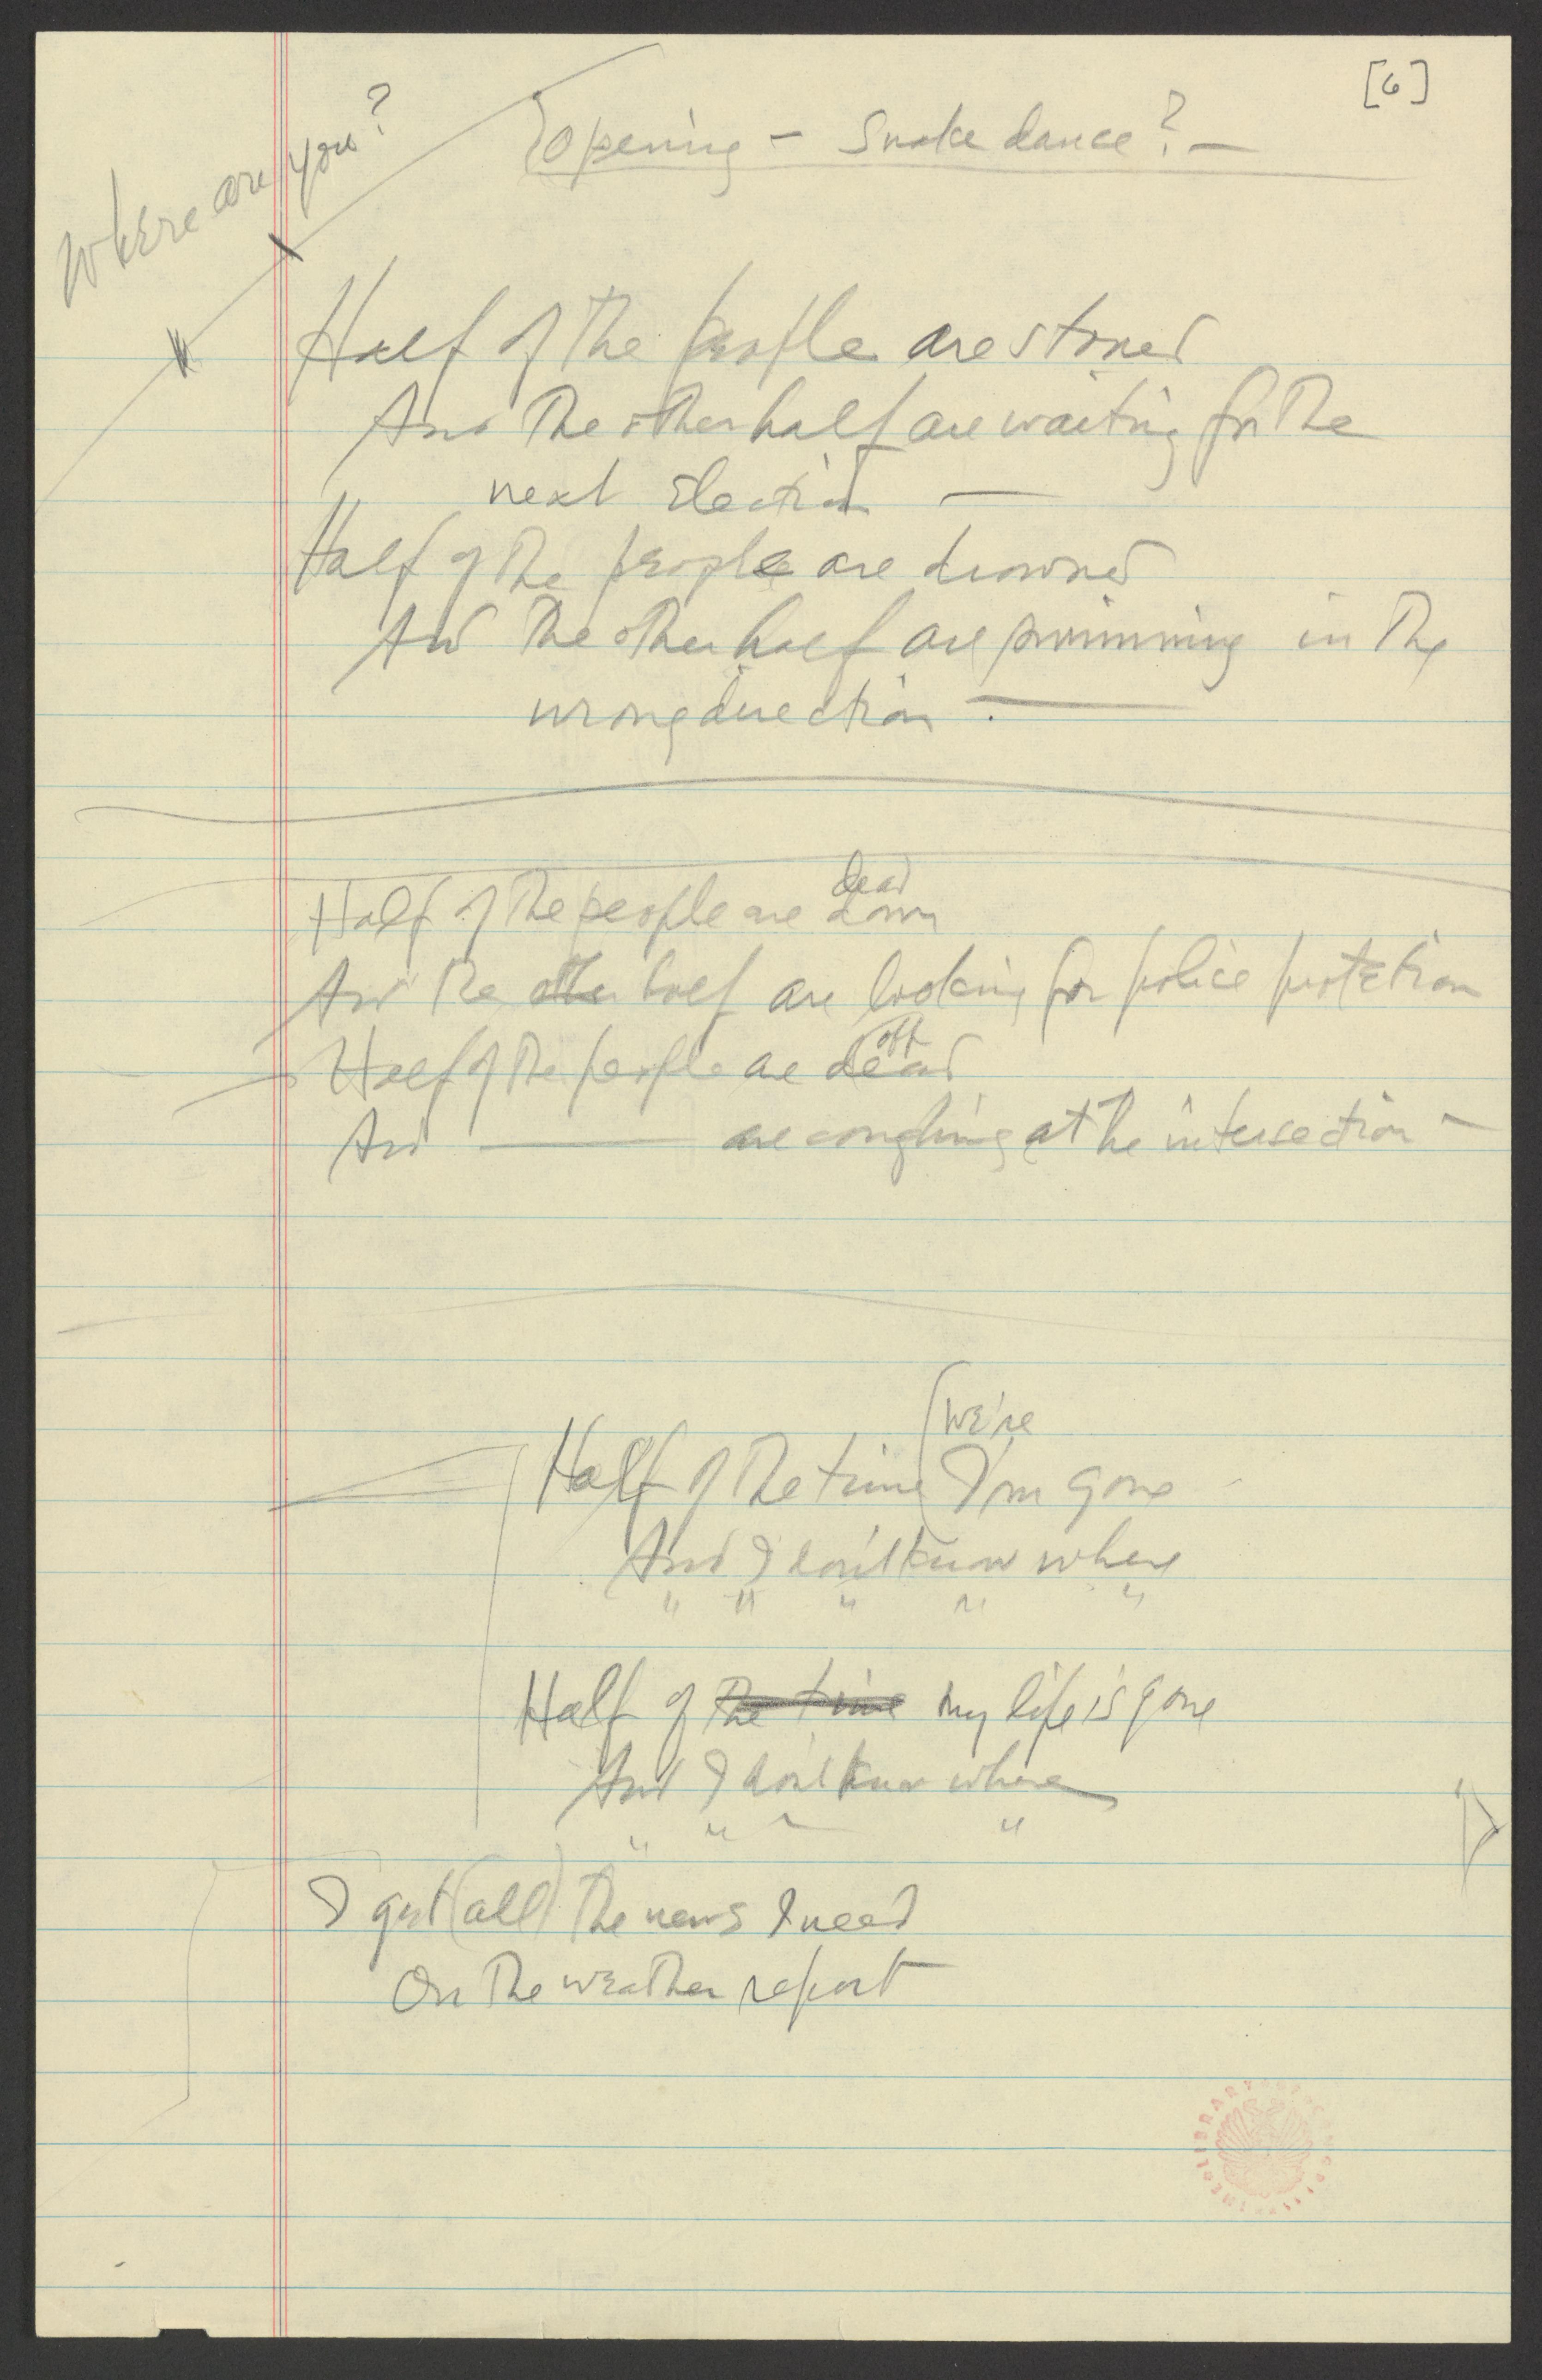 [6]
Where are you?
Opening - Snake dance? -
Half of the people are stoned
And the other half are waiting for the
next Election -
Half of the people are drowned
And the other half are swimming in the
wrong direction -
dead
Half of the people are down
And the other half are looking for police protection
off
Half of the people are dead
And ——— are coughing at the intersection -
we're
Half of the time I'm gone
And I don't know where
" " " " "
Half of the time my life is gone
And I don't know where
" " " "
I get (all) the news I need
On the weather report